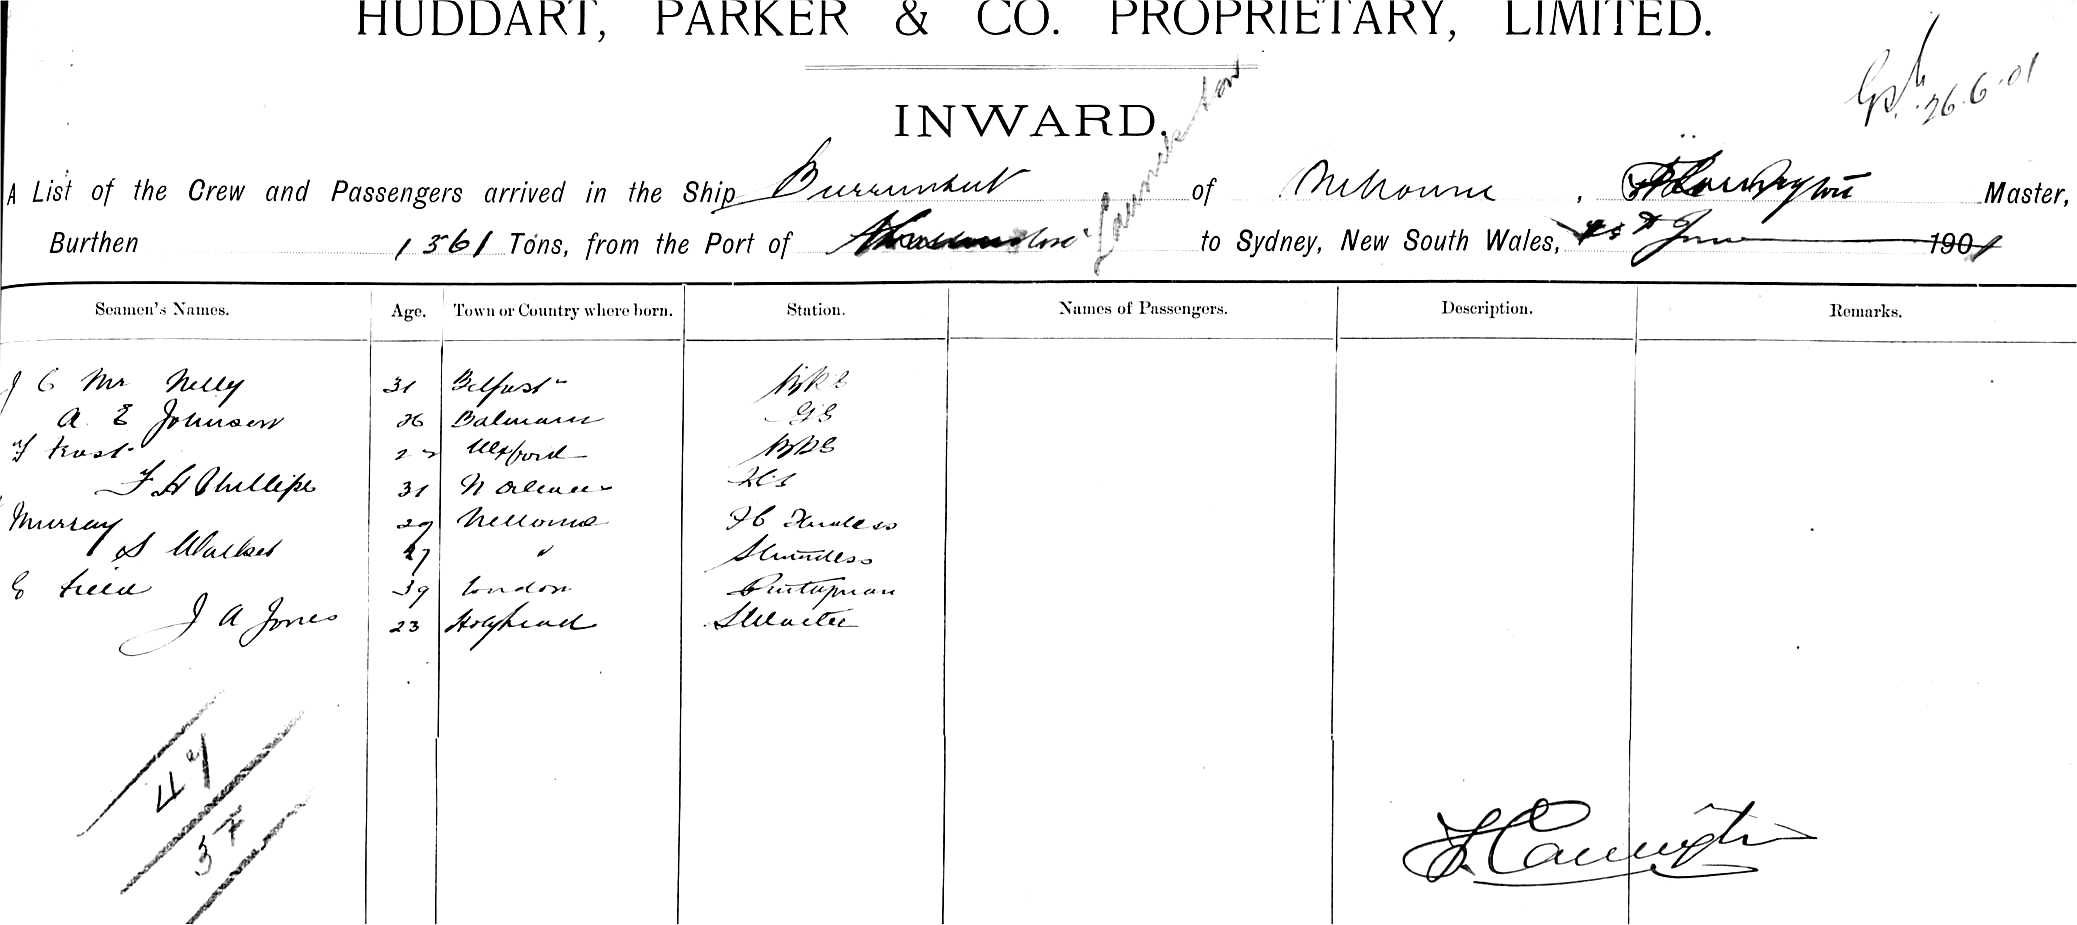 HUDDART, PARKER & CO. PROPRIETARY, LIMITED.
26.6.01
INWARD.
Launceston
A List of the Crew and Passengers arrived in the Ship Burrumbeet of Melbourne, Carrington Master,
Burthen 1361 Tons, from the Port of to Sydney, New South Wales, June 1901
Seamen's Names. Age. Town or Country where born. Station. Names of Passengers. Description. Remarks.
J C Mc Nelly 31 Belfast
A. E Johnson 26 Balmain
Frost Wexford
F H Phillips 31 N Orleans
Murray 29 Melbourne
S Walker 27 " Stewardess
E Field 39 London Pantryman
J A Jones 23 Holyhead Steward
49
37
Carrington